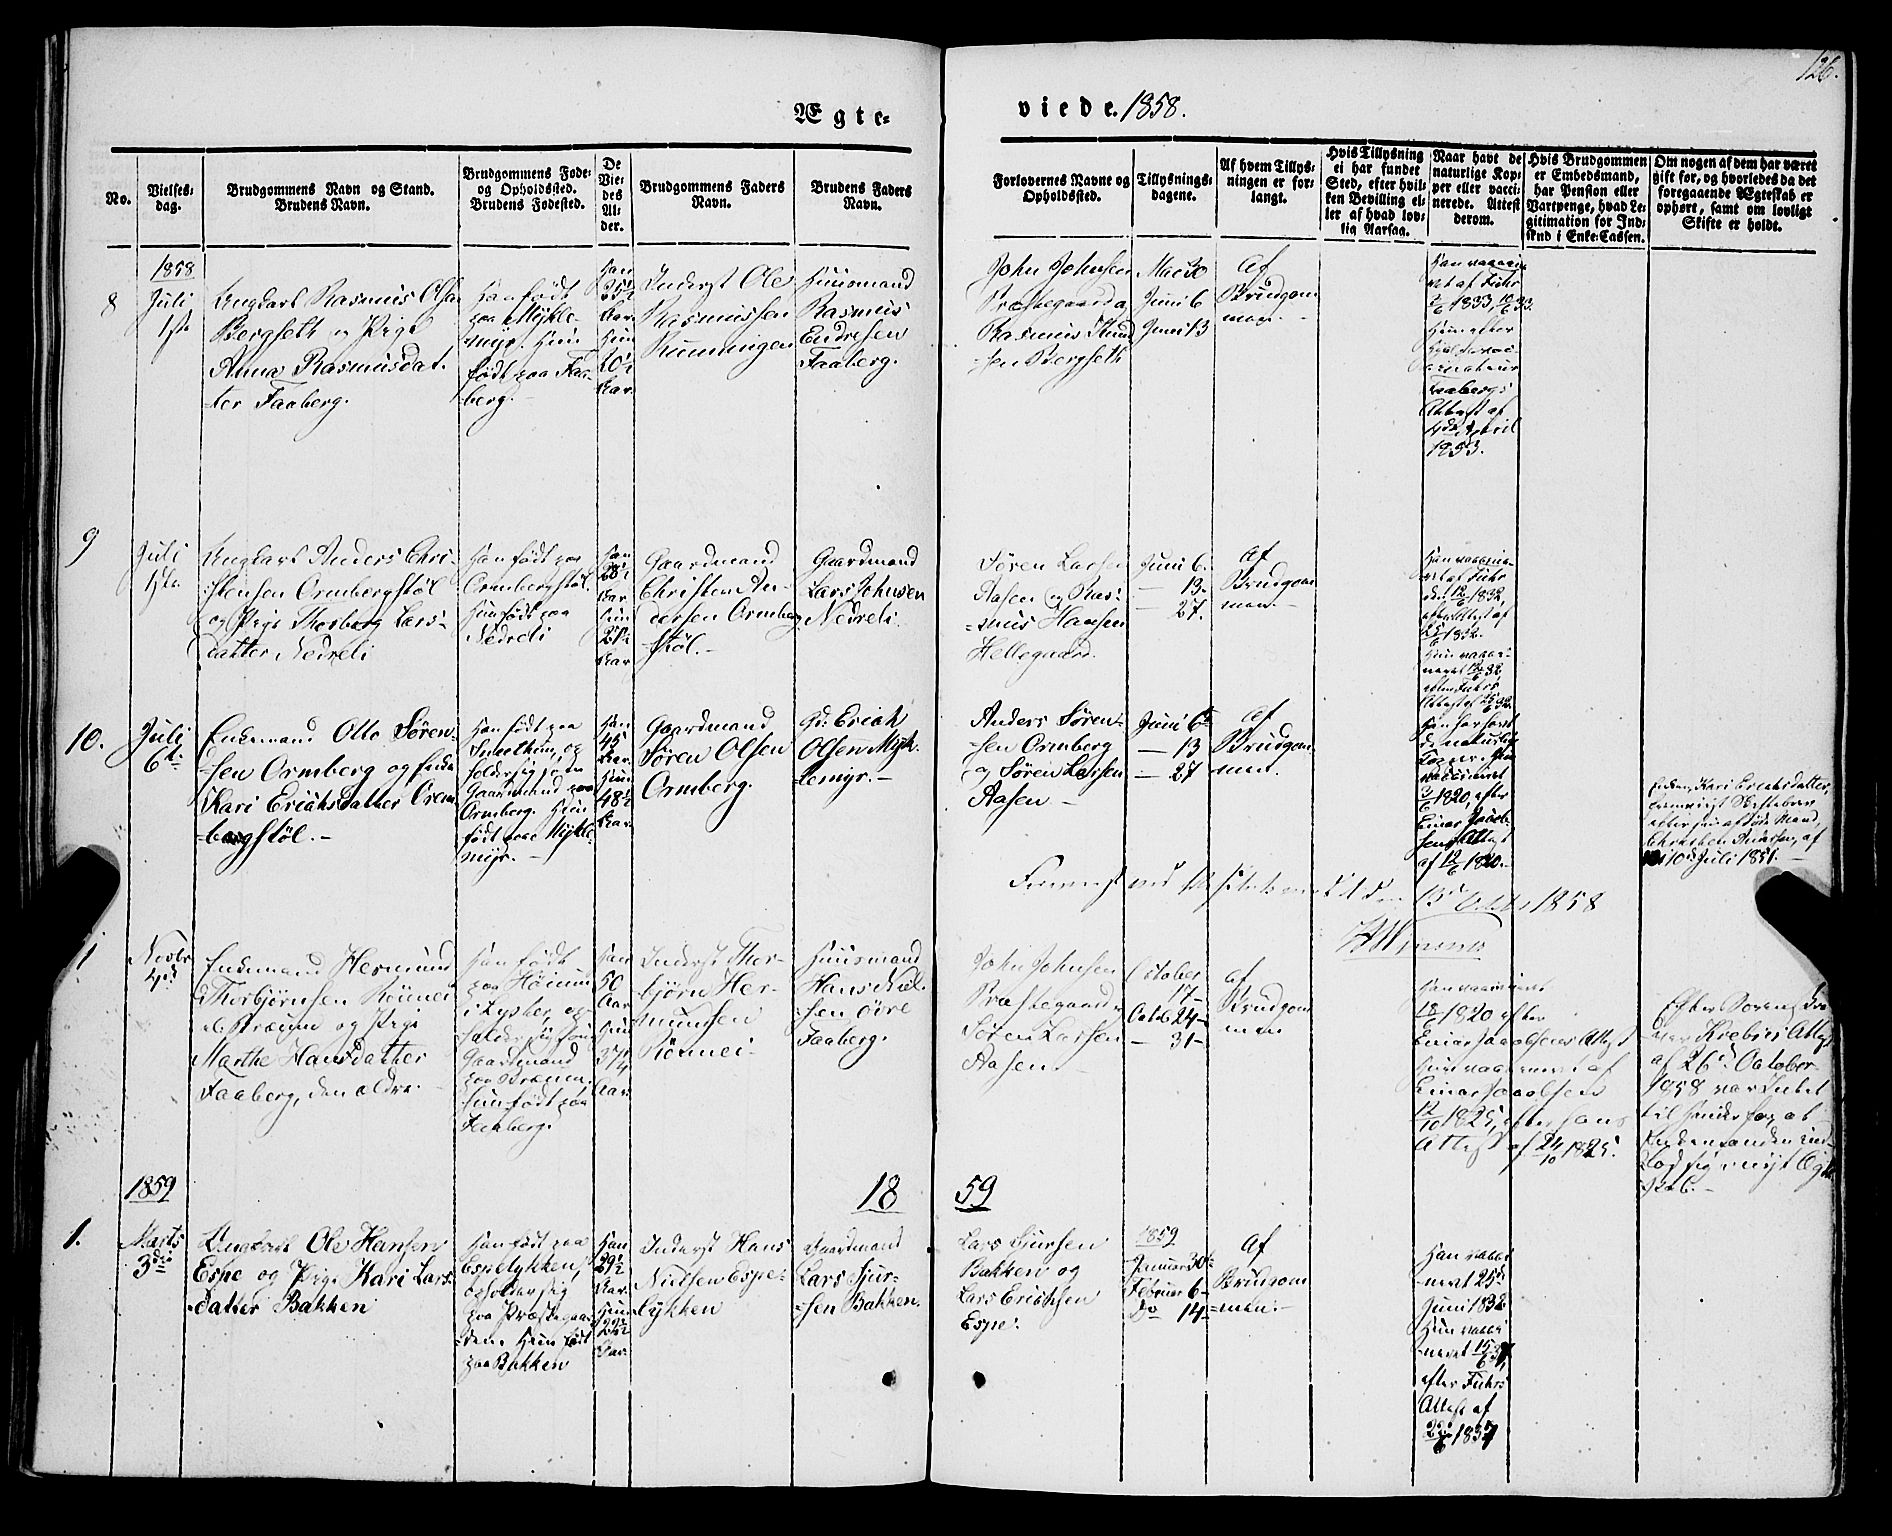 126.
Ægte-
viede. 1858.
No.
Vielses-
dag.
Brudgommens Navn og Stand.
Brudens Navn.
Brudgommens Føde-
og Opholdssted.
Brudens Fødested.
De
Vie-
des
Al-
der.
Brudgommens Faders
Navn.
Brudens Faders
Navn.
Forlovernes Navne og
Opholdssted.
Tillysnings-
dagene.
Af hvem Tillys-
ningen er for-
langt.
Hvis Tillysning
ei har fundet
Sted, efter hvil-
ken Bevilling el-
ler af hvad lov-
lig Aarsag.
Naar havt de
naturlige Kop-
per eller vacci-
nerede. Attest
derom.
Hvis Brudgommen
er Embedsmand,
har Pension eller
Vartpenge, hvad Le-
gitimation for Ind-
skud i Enke-Cassen.
Om nogen af dem har været
gift før, og hvorledes da det
foregaaende Ægteskab er
ophørt, samt om lovligt
Skifte er holdt.
8
1858
Juli
1ste
Ungkarl Rasmus Olsen
Bergseth og Pige
Anna Rasmusdat-
ter Faaberg.
Han født
paa Mykle-
myr. Hun
født paa Faa-
berg.
Han
35½
Aar
Hun
20½
Aar
Inderst Ole
Rasmussen
Huusmand
Rasmus
Endresen
Faaberg.
John Johnsen
Præstegaard og
Rasmus Knud-
sen Bergseth
Mai 30
Juni 6
Juni 13
Af
Brudgom-
men.
Han vaccine-
ret af Fuhr
1833,
Hun efter
Faabergs
Attest af
4de April
1853.
9
Juli
1ste
Ungkarl Anders Chri-
stensen Ormbergstøl
og Pige Thorberg Lars-
datter Nedreli
Han født paa
Ormbergstøl.
Hun født paa
Nedreli
Han
28½
Aar
Hun
21½
Aar
Gaardmand
Christen An-
dersen Ormberg-
støl.
Gaardmand
Lars Johnsen
Nedreli.
Søren Larsen
Aasen og Ras-
mus Hansen
Hellegaard.
Juni 6.
— 13.
— 27.
Af
Brudgom-
men.
Han vaccine-
ret af Fuhr
den 12/6 1832,
efter Attest af
25/6 1832.
Hun vacci-
neret 12/6 32
efter Fuhrs
Attest af
10.
Juli
6te
Enkemand Otto Søren-
sen Ormberg og Enke
Kari Ericksdatter Orm-
bergstøl.
Han født paa
og
holder sig som
Gaardmand paa
Ormberg. Hun
født paa Mykle-
myr.
Han
45
Aar
Hun
48½
Aar
Gaardmand
Søren Olsen
Ormberg.
Gd. Erick
Olsen Myk-
lemyr.
Anders Søren-
sen Ormberg
og Søren Larsen
Aasen
Juni 6te
— 13
— 27
Af
Brudgom-
men.
Han har havt
de naturlige
Kopper. Hun
vaccineret
1820, efter
Einar Jacob-
sens Attest
af 12/6 1820.
Enken, Kari Ericksdatter,
fremviist Skiftebrev
efter sin afdøde Mand,
Christen Andersen, af
10de Juli 1851.
1858
1
Novbr
4de
Enkemand Hermund
Thorbjørnsen Rønnei
Marthe Hansdatter
Faaberg, den ældre.
Han født
paa Høium
i Lyster, og
Gaardmand
Hun født paa
Faaberg.
Han
50
Aar
Hun
37¼
Aar
Inderst Thor-
bjørn Her-
mundsen
Rønnei
Huusmand
Hans Niel-
sen øvre
Faaberg.
John Johnsen
Præstegaard og
Søren Larsen
Aasen.
October
17
Octob. 24
— 31
af
Brudgom-
men
Han vaccineret
18/6 1820 efter
Einar Jacobsens Attest
Hun vaccineret af
Einar Jacobsen
12/10 1825, efter hans
Attest af 24/10 1825.
Efter Soren-
skriver Krebs's Attest
af 26de October
1858 var Intet
til Hinder for, at
Enkemanden ind-
lod sig i nyt Ægte-
skab.
1859
18
59
1.
Marts
3die
Ungkarl Ole Hansen
Espe og Pige Kari Lars-
datter Bakken
Han født paa
Espelykken,
opholder sig
paa Præstegaar-
den. Hun født
paa Bakken
Han
29½
Aar.
Hun
22½
Aar.
Inderst Hans
Nielsen Espe-
lykken
Gaardmand
Lars Sjur-
sen Bakken.
Lars Sjursen
Bakken og
Lars Erichsen
Espe.
1859
Januar 30te
Februar 6
Do 14
Af
Brudgom-
men.
Han vacci-
neret 25de
Juni 1832
Hun vacci-
neret
efter Fuhrs
Attest af
1837